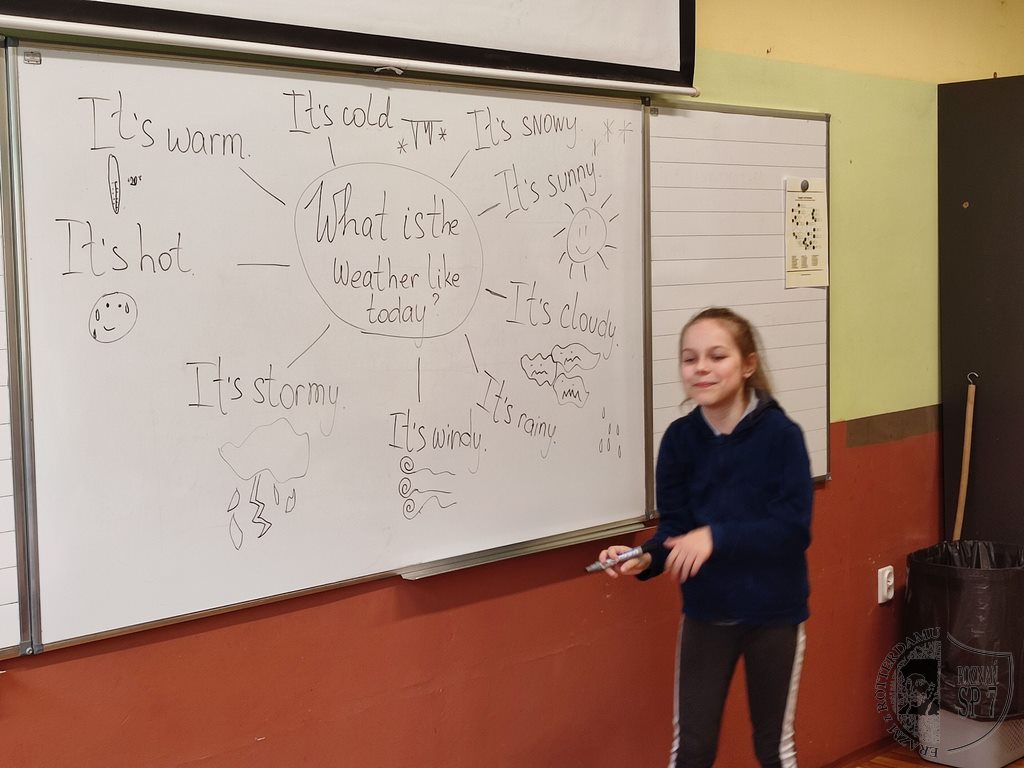 It's warm.
It's cold
It's snowy.
It's sunny.
It's hot.
What is the
weather like
today?
It's cloudy.
It's stormy.
It's windy.
It's rainy.
ERAZM z ROTTERDAMU
POZNAŃ
SP 7